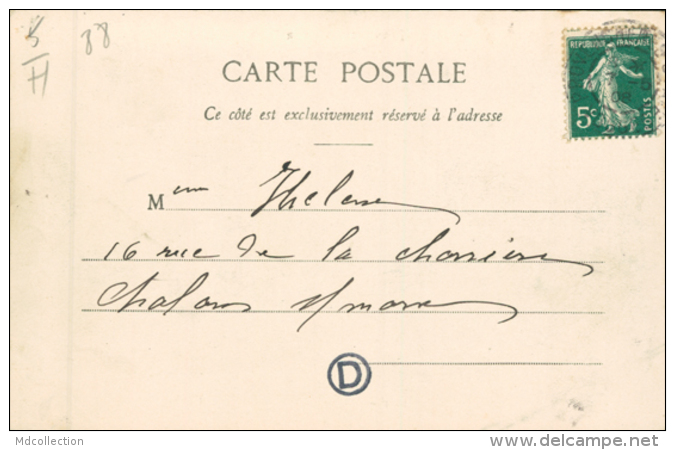 5
H
88
CARTE POSTALE
Ce côté est exclusivement réservé à l'adresse
REPUBLIQUE FRANÇAISE
5c
POSTES
Mme Thelene
16 rue de la charrière
Chalons s/marne
D
Mdcollection
delcampe.net